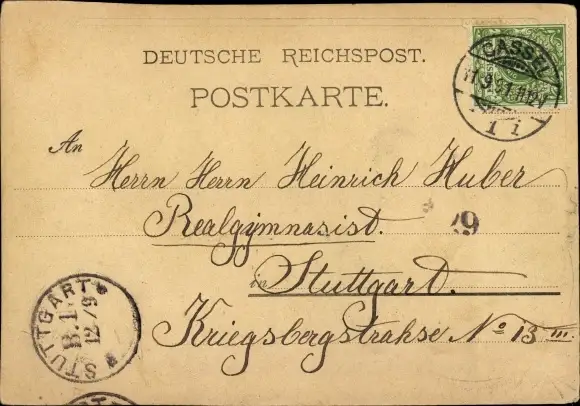 DEUTSCHE REICHSPOST.
POSTKARTE.
CASSEL
11.9.91.11-12V
1 i
An
Herrn Herrn Heinrich Huber
Realgymnasist.
29
in Stuttgart.
Kriegsbergstrahse No 13 III.
STUTTGART
B.I
12/9